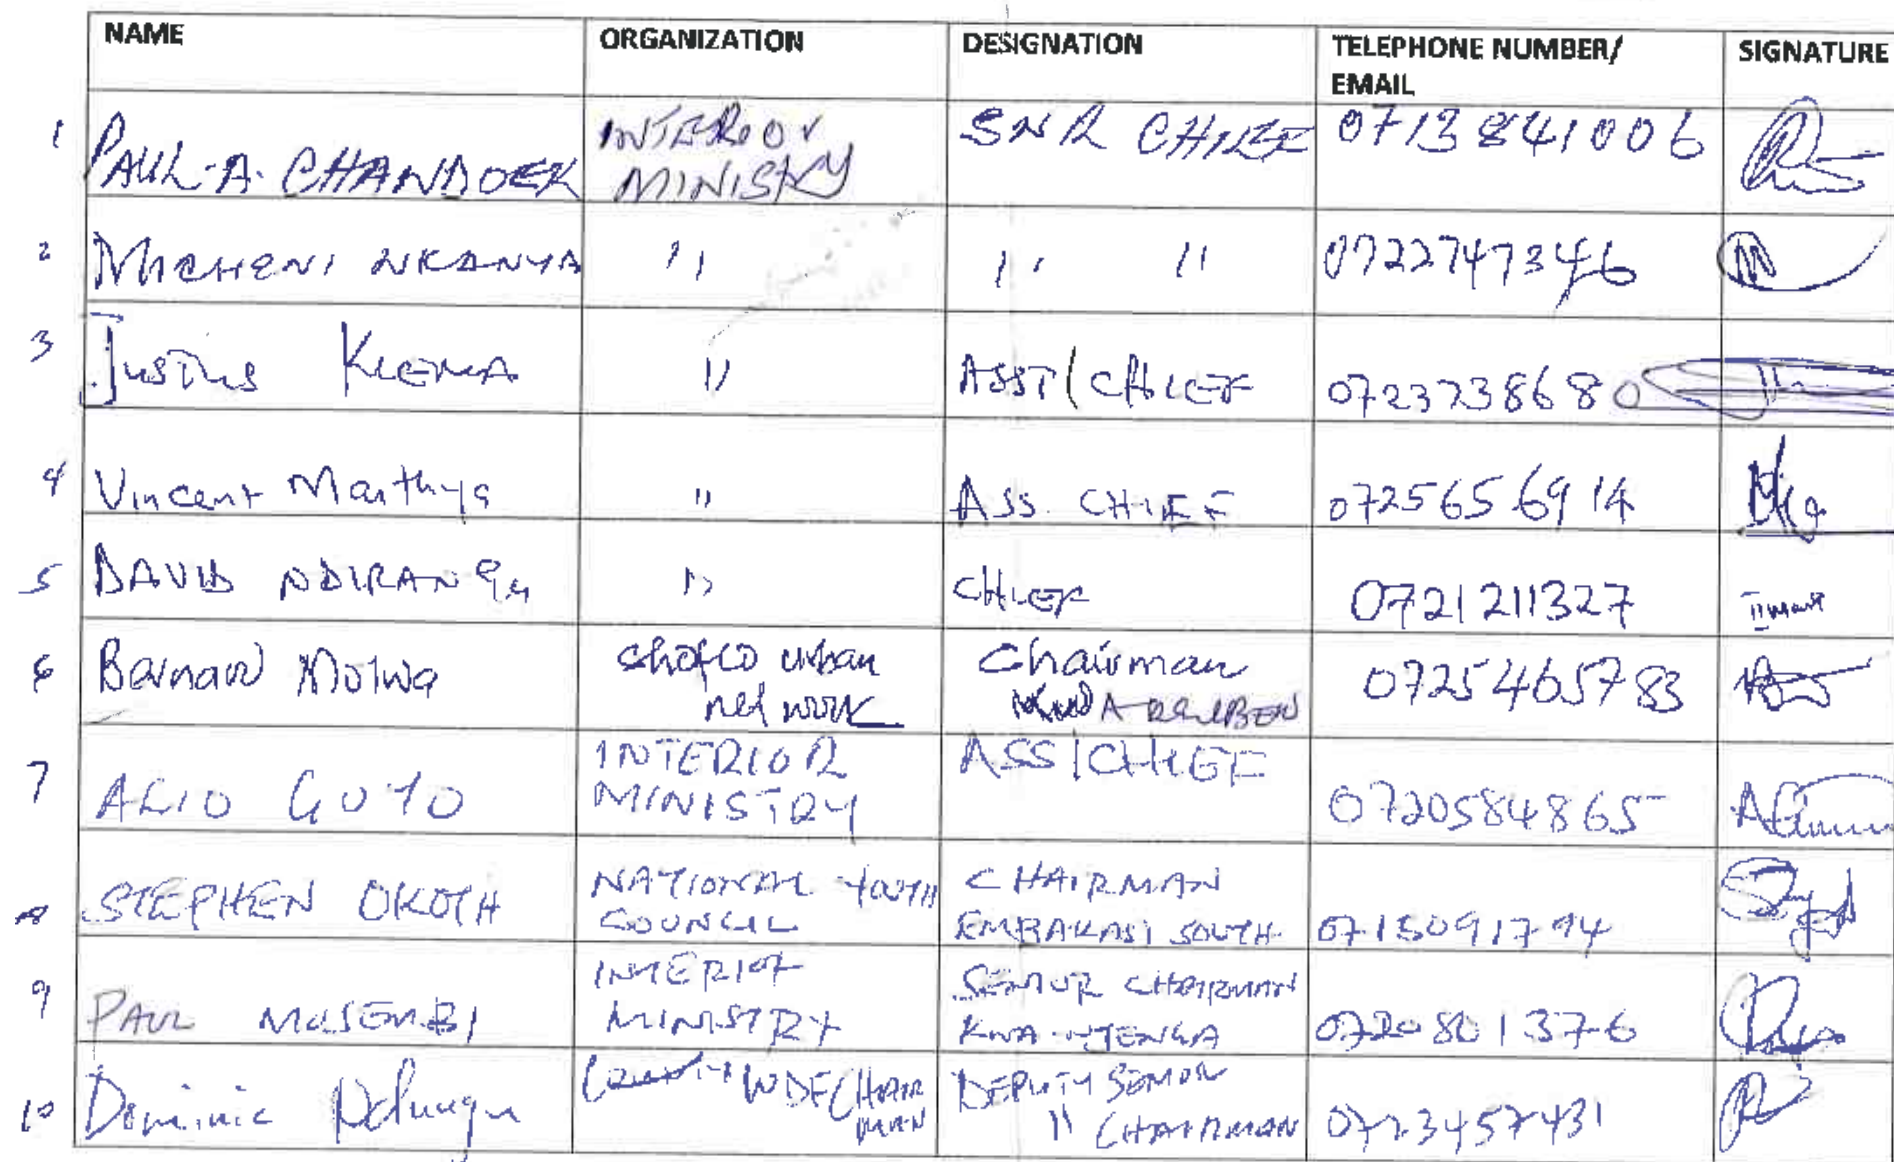 NAME ORGANIZATION DESIGNATION TELEPHONE NUMBER/ EMAIL SIGNATURE
1 PAUL-A. CHANDOEK INTERIOR MINISTRY SNR CHIEF 0713841006
2 MICHENI NKANYA " " " 0722747346
3 Justus KIEMA " ASST/CHIEF 0723738680
4 Vincent Maithya " ASS. CHIEF 0725656914
5 DAVID NDIRANGU " CHIEF 0721211327
6 Barnard Molwa urban network Chairman 0725465783
7 ALIO GUYO INTERIOR MINISTRY ASS/CHIEF 0720584865
8 STEPHEN OKOTH NATIONAL YOUTH COUNCIL CHAIRMAN EMBAKASI SOUTH 0715091794
9 PAUL MUSEMBI INTERIOR MINISTRY SENIOR CHAIRMAN KWA-NJENGA 0720801376
10 Dominic Ndungu WDF CHAIRMAN DEPUTY SENIOR " CHAIRMAN 0723457431